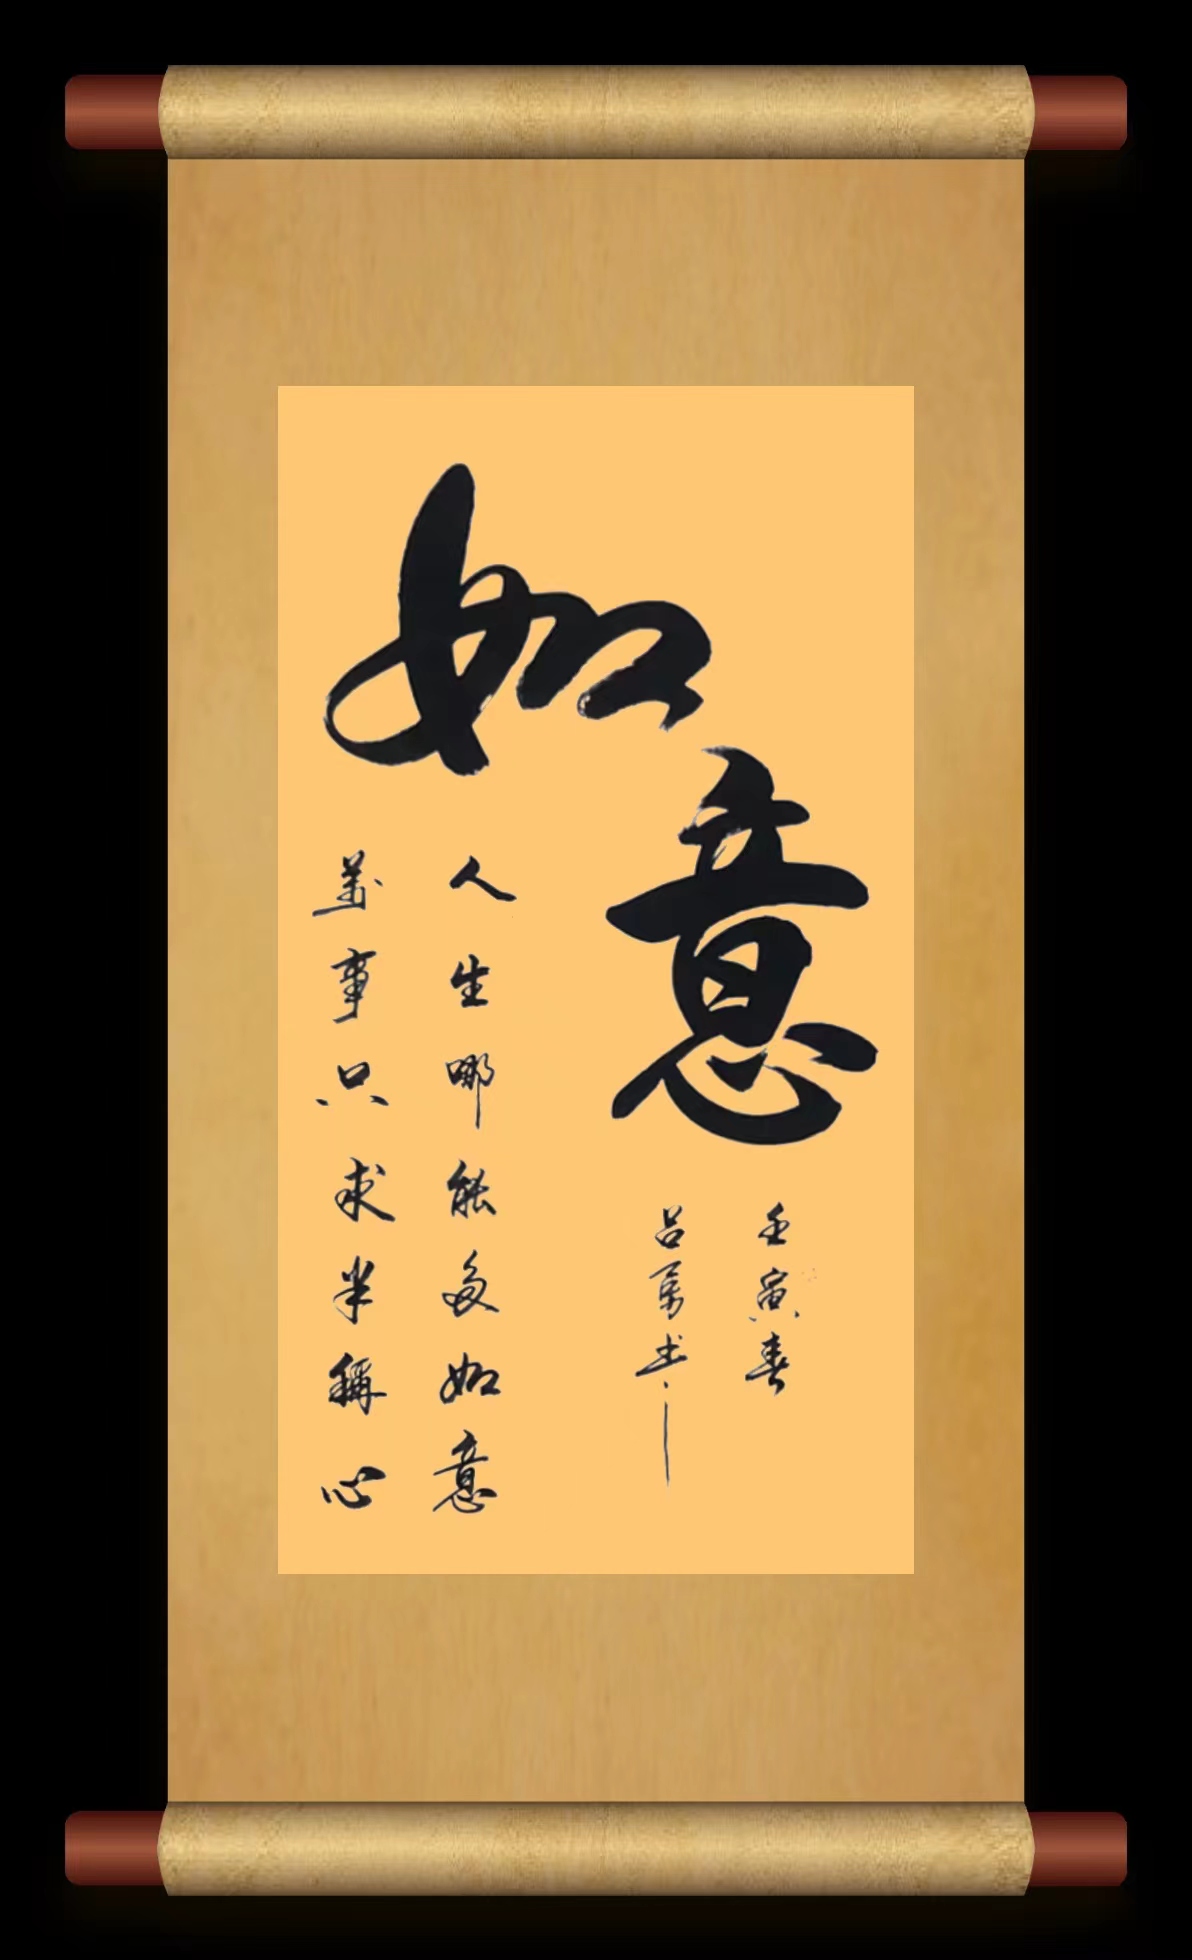 如意
壬寅春
吕勇书
人生哪能多如意
萬事只求半稱心